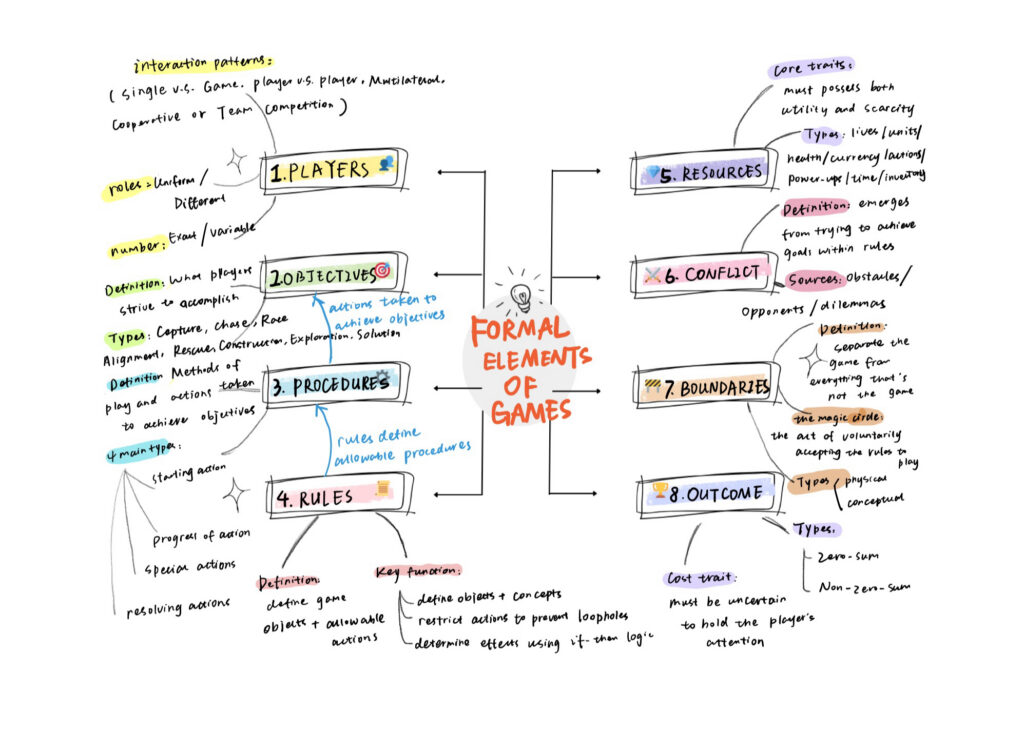 interaction patterns:
(single v.s. Game. player v.s. player. Multilateral.
Cooperative or Team Competition)
1. PLAYERS
roles: Uniform /
Different
number: Exact / variable
Definition: What players
strive to accomplish
2. OBJECTIVES
Types: Capture, chase, Race
Alignment, Rescue, Construction, Exploration, Solution
actions taken to
achieve objectives
Definition Methods of
play and actions taken
to achieve objectives
3. PROCEDURES
4 main types:
starting action
progress of action
special actions
resolving actions
rules define
allowable procedures
4. RULES
Definition:
define game
objects + allowable
actions
Key function:
define objects + concepts
restrict actions to prevent loopholes
determine effects using if-then logic
FORMAL
ELEMENTS
OF
GAMES
Core traits:
must possess both
utility and scarcity
5. RESOURCES
Types: lives / units /
health / currency / actions /
power-ups / time / inventory
Definition: emerges
from trying to achieve
goals within rules
6. CONFLICT
Sources: Obstacles /
Opponents / dilemmas
Definition:
separate the
game from
everything that's
not the game
7. BOUNDARIES
the magic circle:
the act of voluntarily
accepting the rules to
play
Types
physical
conceptual
8. OUTCOME
Types:
Zero-sum
Non-zero-sum
Cost trait:
must be uncertain
to hold the player's
attention